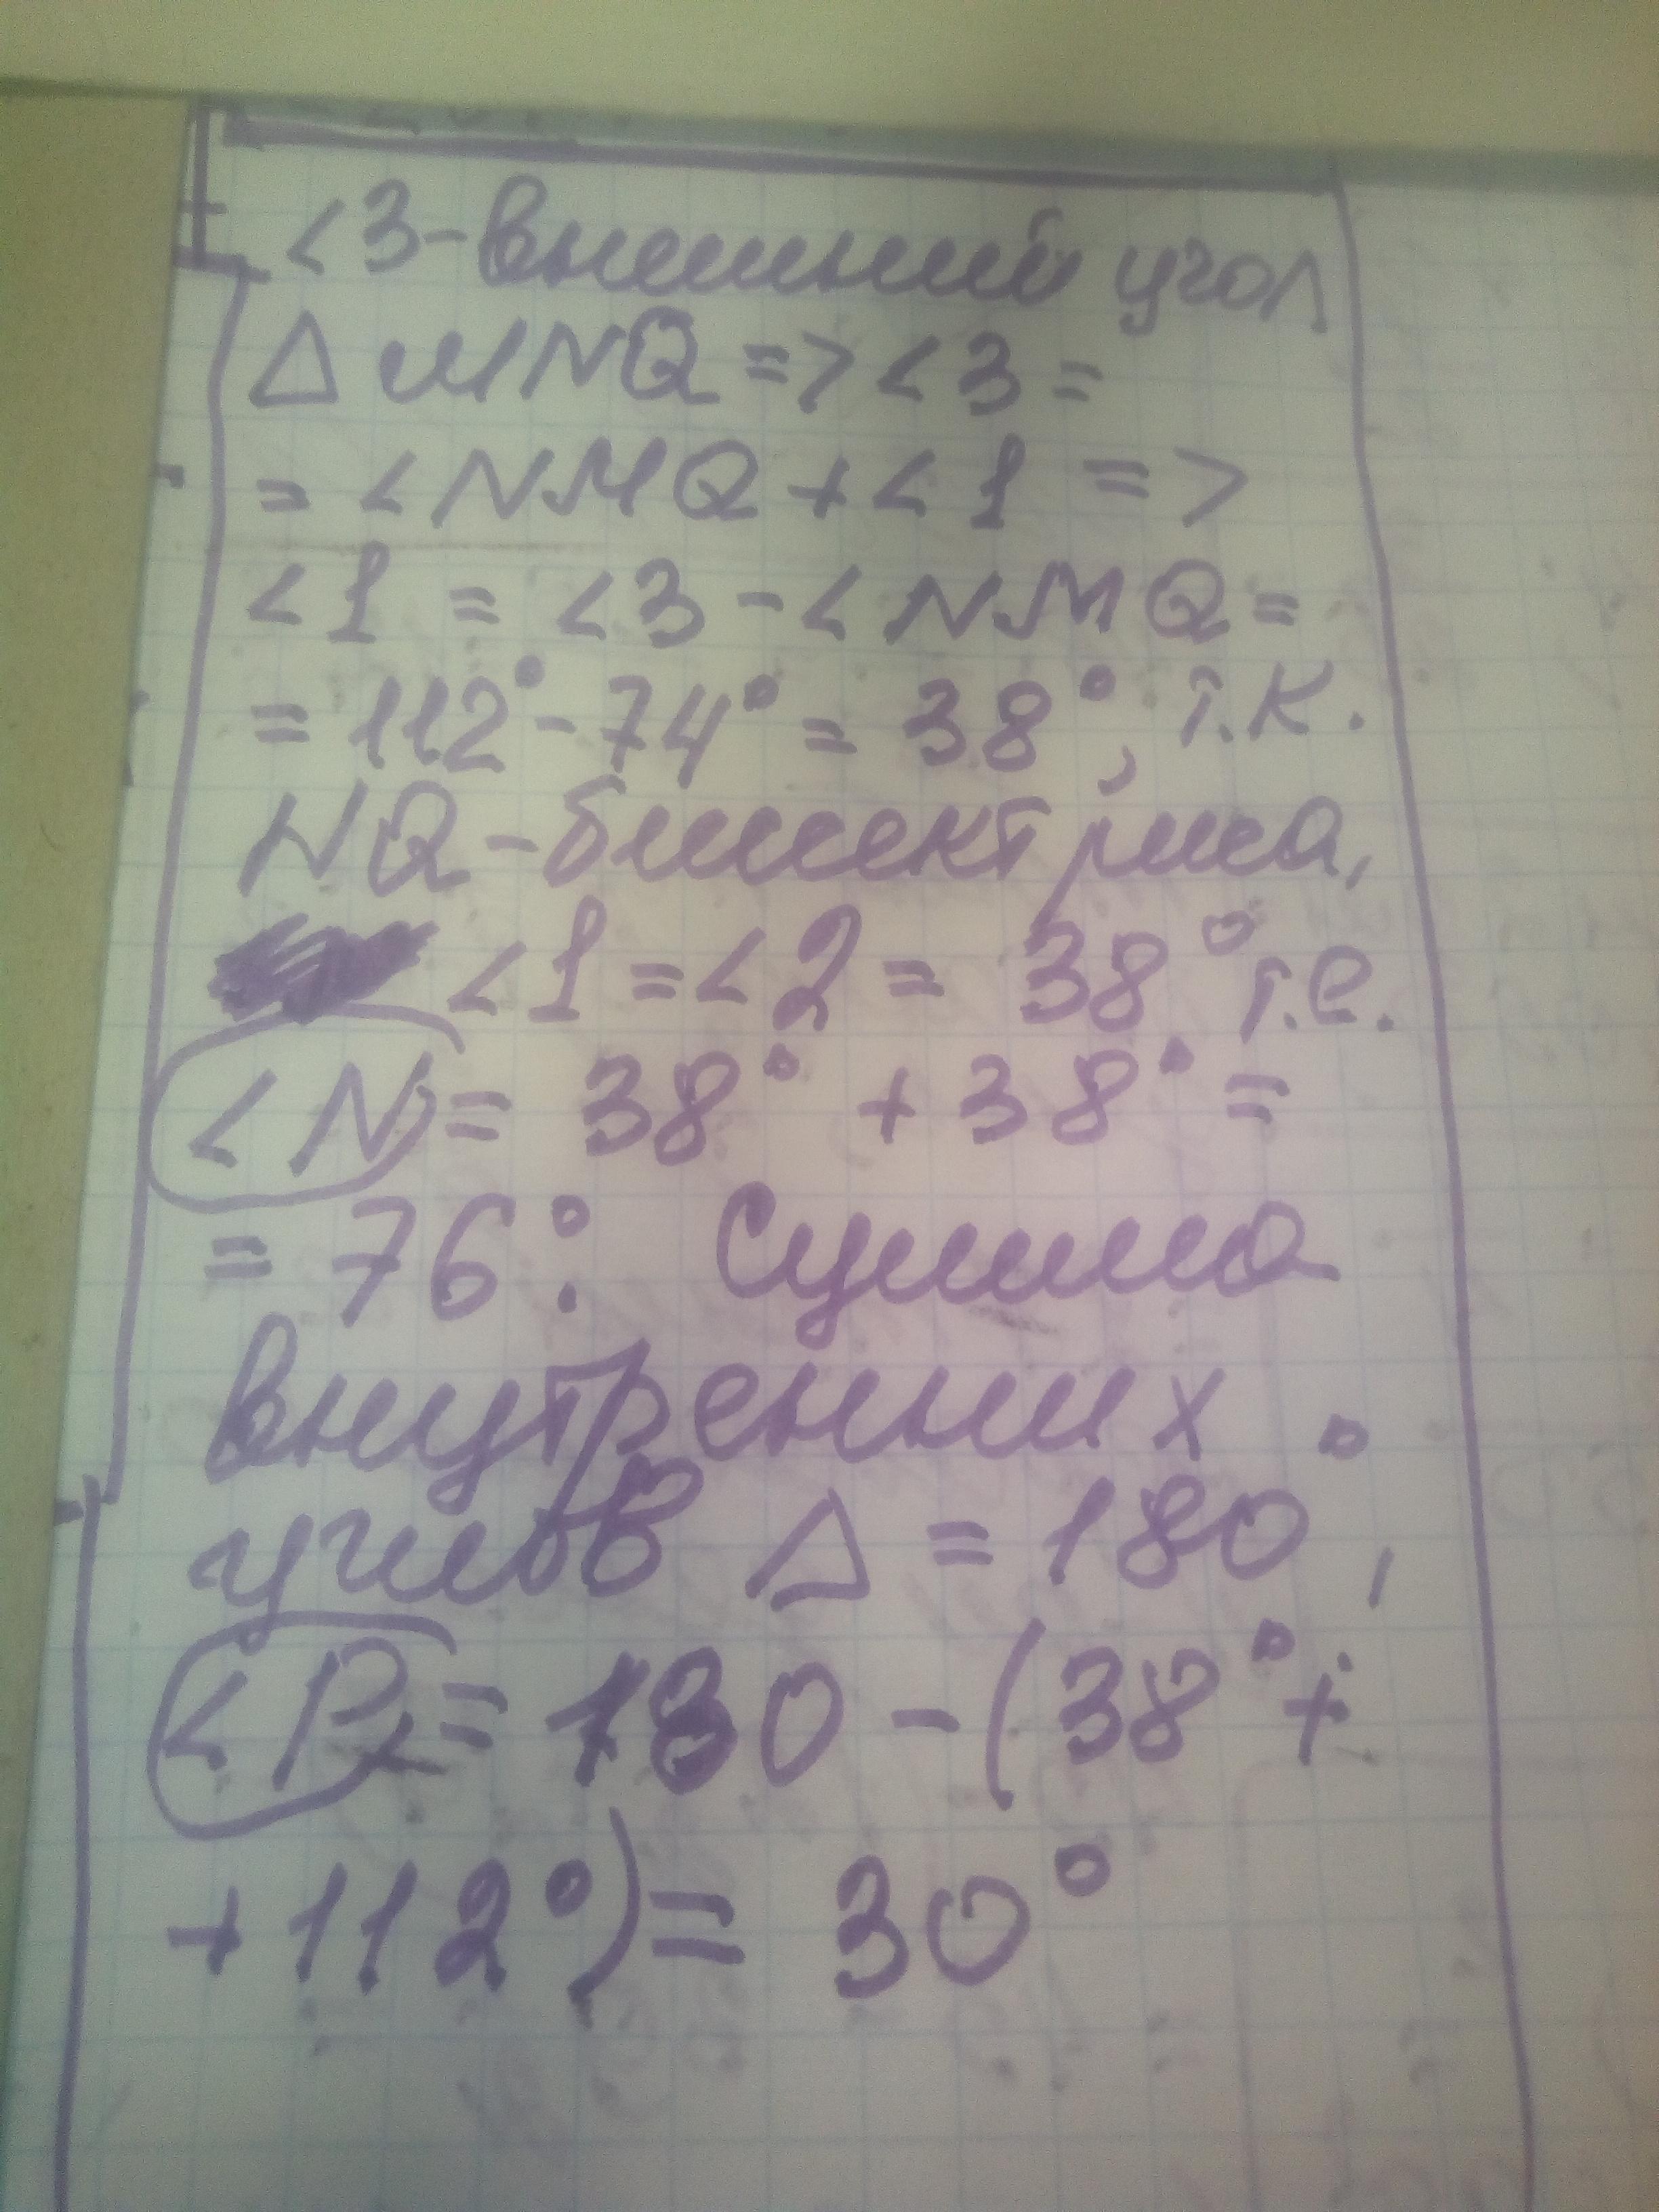 <3-внешний угол
Δ MNQ => <3 =
= <NMQ + <1 =>
<1 = <3 - <NMQ =
= 112° - 74° = 38°, т.к.
NQ - биссектриса,
<1 = <2 = 38° т.е.
<N = 38° + 38° =
= 76°. Сумма
внутренних
углов Δ = 180°,
<P = 180 - (38° +
+ 112°) = 30°